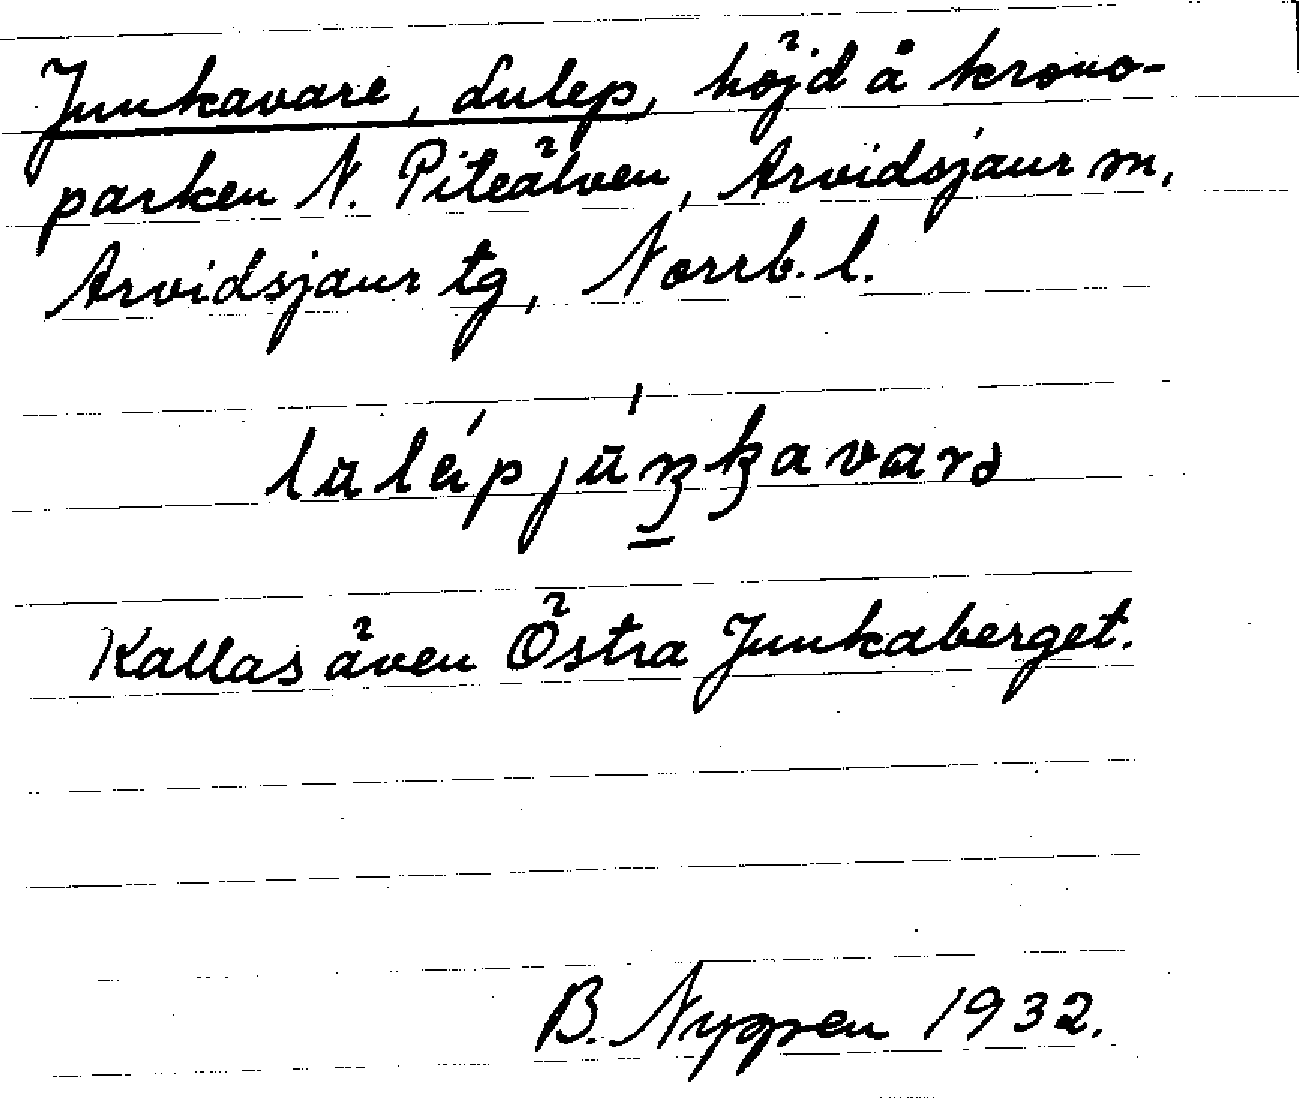 Junkavare, Lulep, höjd å krono-
parken N. Piteälven, Arvidsjaur sn,
Arvidsjaur tg, Norrb. l.
Kallas även Östra Junkaberget.
B. Nyppen 1932.